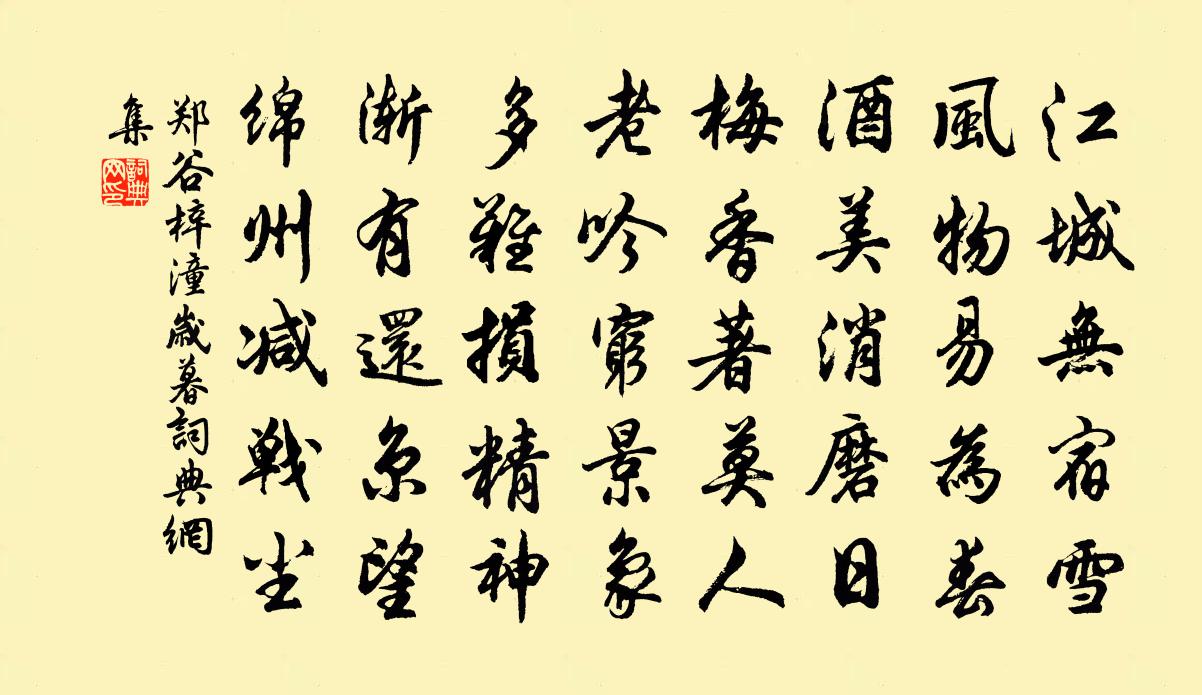 江城無宿雪
風物易為春
酒美消磨日
梅香著莫人
老吟窮景象
多難損精神
漸有還京望
綿州減戰尘
郑谷梓潼歲暮詞典網
集
詞典
网印